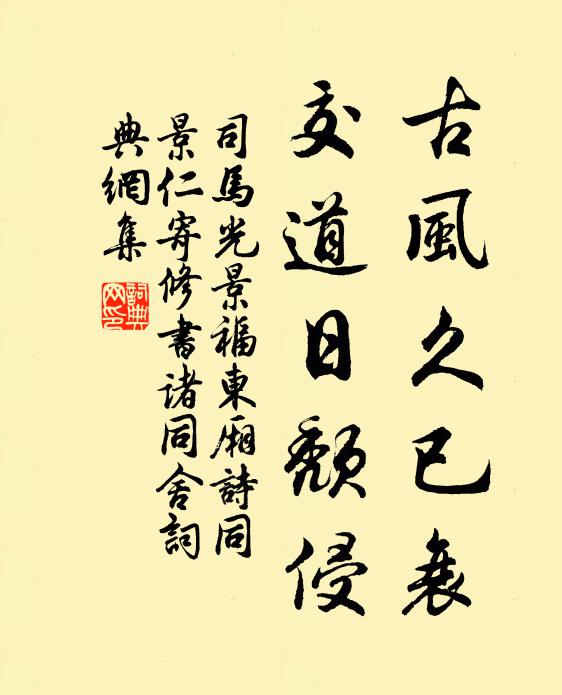 古風久已衰
交道日頹侵
司馬光景福東廂詩同
景仁寄修書诸同舍詞
典網集
詞典
网印